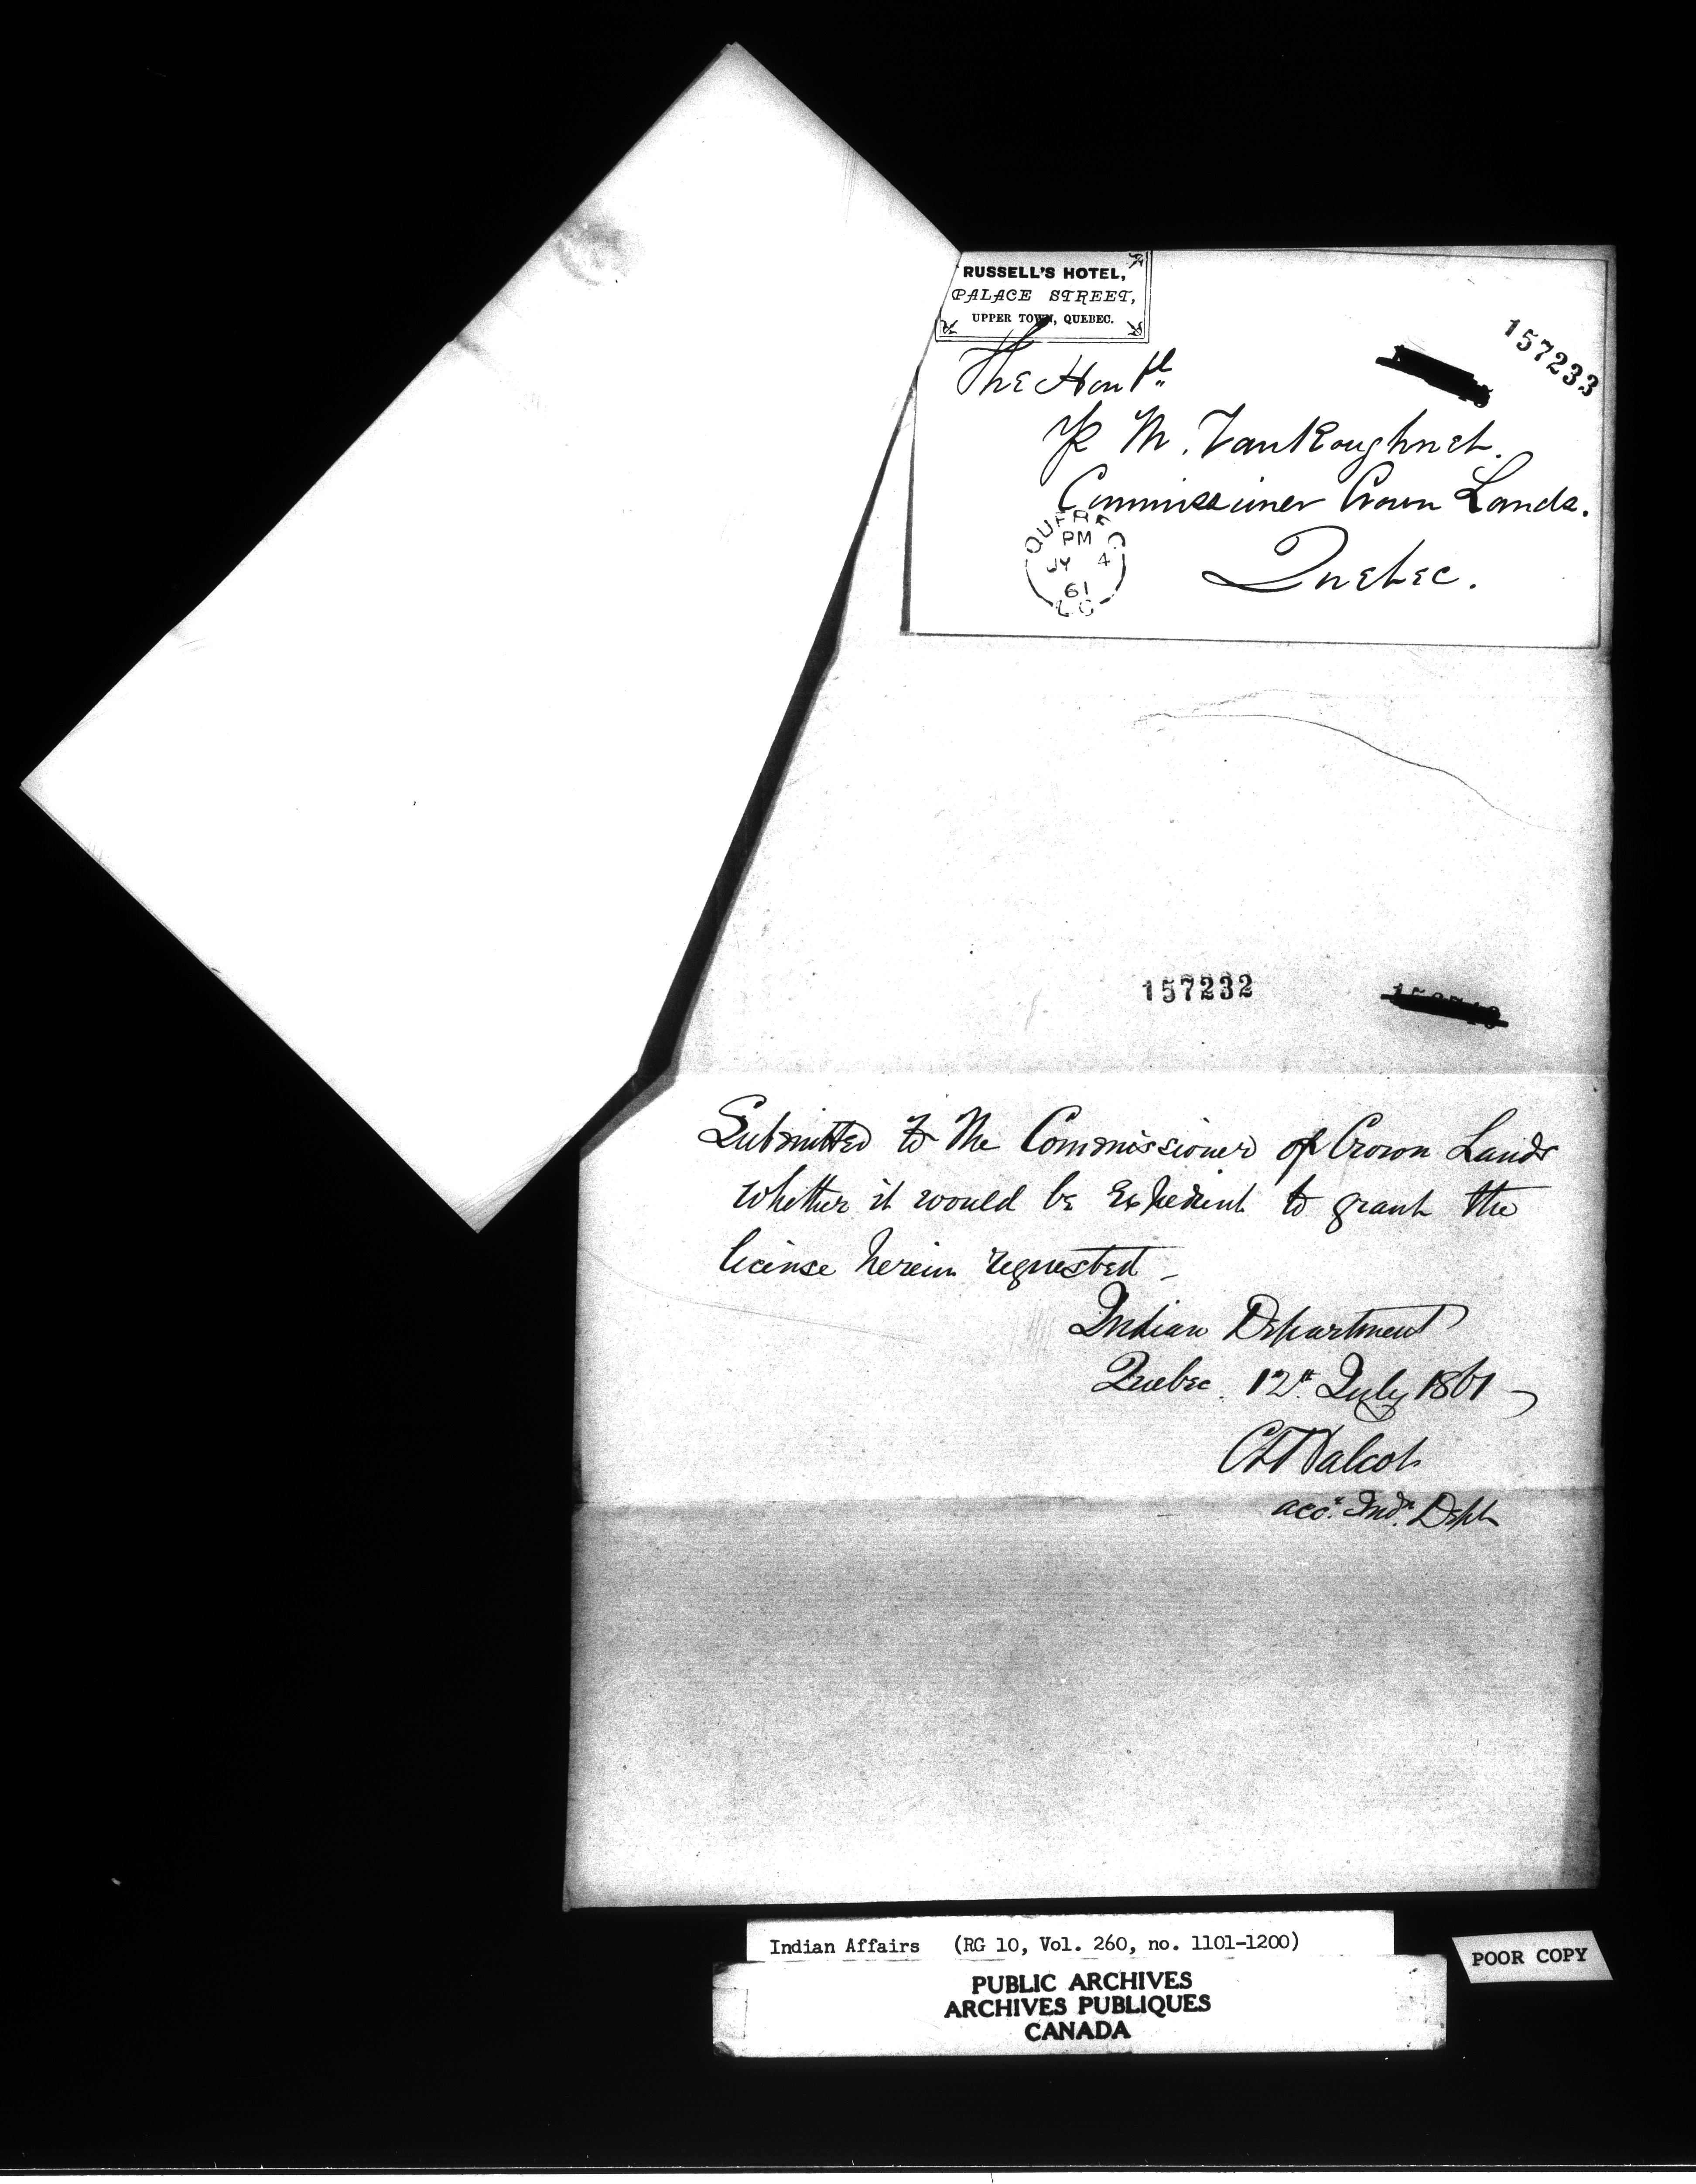 RUSSELL'S HOTEL,
PALACE STREET,
UPPER TOWN, QUEBEC.
157233
The Honble
P M. VanKoughnet.
Commissioner Crown Lands.
Quebec.
QUEBEC
PM
JY 4
61
L.C
157232
Submitted to the Commissioner of Crown Lands
whether it would be Expedient to grant the
license herein requested –
Indian Department
Quebec. 12th July 1861
C T Walcot
acct. Indn. Dept
Indian Affairs (RG 10, Vol. 260, no. 1101-1200)
PUBLIC ARCHIVES
ARCHIVES PUBLIQUES
CANADA
POOR COPY